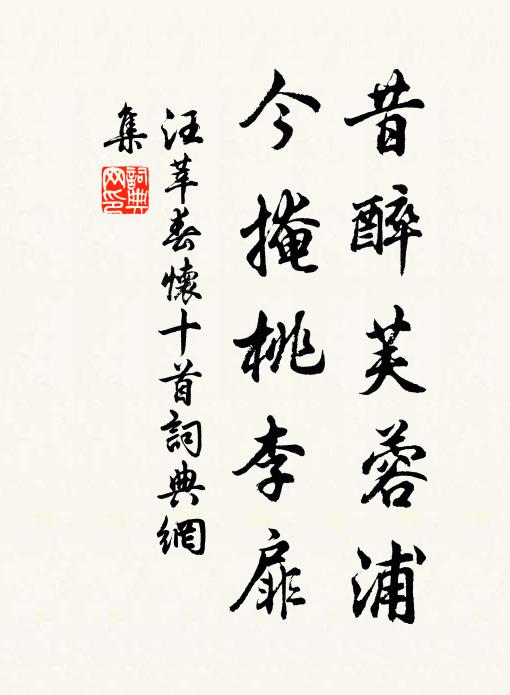 昔醉芙蓉浦
今掩桃李扉
汪莘春懷十首詞典網
集
詞典網印